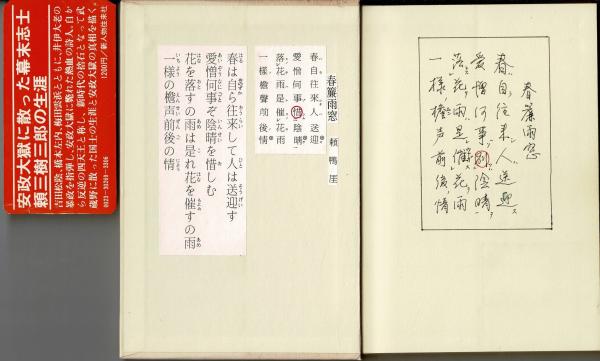 安政大獄に散った幕末志士
頼三樹三郎の生涯
吉田松陰、橋本左内、梅田雲浜とともに、井伊大老の
暴政を指弾し、安政大獄に斃れた熱血の詩人。自か
ら反逆の四天王と称し、新時代の捨石となって武
蔵野に散った国士の生涯と安政大獄の真相を描く。
1200円/新人物往来社
春簾雨窓 頼鴨厓
春自往來人送迎
愛憎何事惜陰晴
落花雨是催花雨
一樣檐聲前後情
春は自ら往来して人は送迎す
愛憎何事ぞ陰晴を惜しむ
花を落すの雨は是れ花を催すの雨
一様の檐声前後の情
春簾雨窓
春自往来人送迎
愛憎何事陰晴
落花雨是催花雨
一様檐声前後情